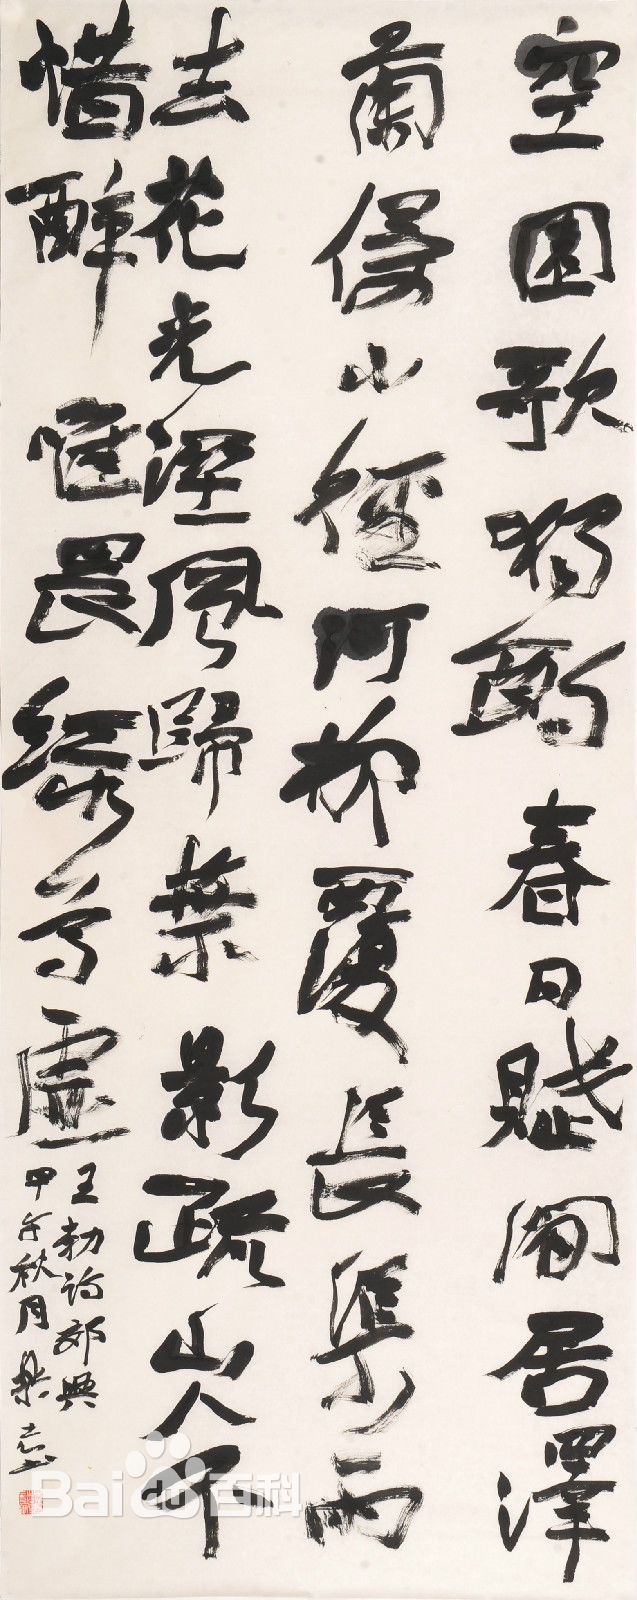 空園歌獨酌春日賦閑居澤
蘭侵小徑河柳覆長渠雨
去花光濕風歸葉影疏山人不
惜醉惟畏緑尊虛
王勃詩郊興
甲午秋月樂
Bai百科